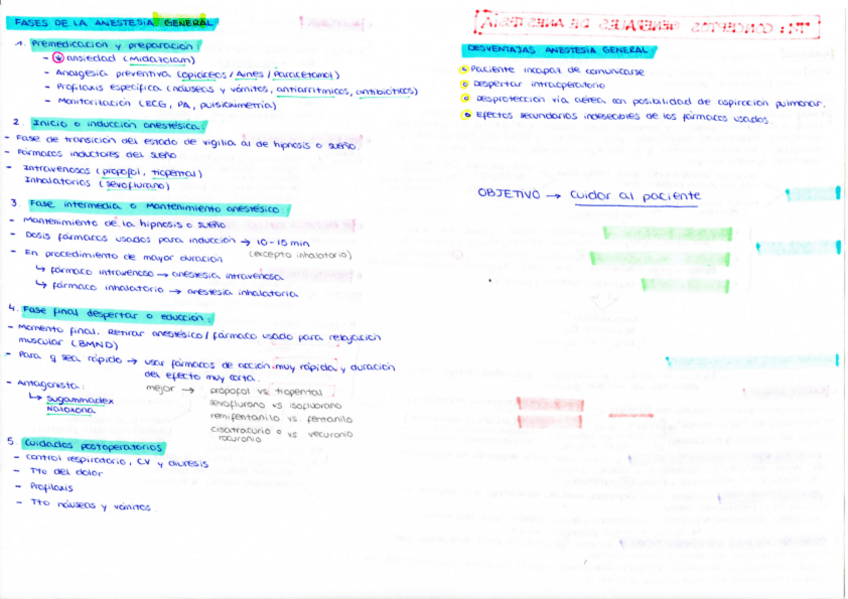 FASES DE LA ANESTESIA GENERAL
1. Premedicacion y preparación:
- ↓ ansiedad (Midazolam)
- Analgesia preventiva (opiáceos / Aines / Paracetamol)
- Profilaxis específica (náuseas y vómitos, antiarritmicos, antibióticos)
- Monitorización (ECG, PA, pulsioximetría)
2. Inicio o inducción anestésica:
- Fase de transición del estado de vigilia al de hipnosis o sueño.
- Fármacos inductores del sueño
- Intravenosos (propofol, tiopental)
Inhalatorios (sevoflurano)
3. Fase intermedia o Mantenimiento anestésico:
- Mantenimiento de la hipnosis o sueño
- Dosis fármacos usados para inducción → 10-15 min
- En procedimiento de mayor duración (excepto inhalatorio)
↳ fármaco intravenoso → anestesia intravenosa
↳ fármaco inhalatorio → anestesia inhalatoria
4. Fase final despertar o educción:
- Momento final. Retirar anestésico / fármaco usado para relajación
muscular (BMND)
- Para q sea rápido → usar fármacos de acción muy rápida y duración
del efecto muy corta.
mejor → propofol vs tiopental
sevoflurano vs isoflurano
remifentanilo vs. fentanilo
cisatracurio o vs vecuronio
rocuronio
- Antagonista:
↳ Sugammadex
Naloxona
5. Cuidados postoperatorios
- Control respiratorio, CV y diuresis
- Tto del dolor
- Profilaxis
- Tto náuseas y vómitos.
DESVENTAJAS ANESTESIA GENERAL:
Paciente incapaz de comunicarse
Despertar intraoperatorio
Desprotección vía aérea con posibilidad de aspiración pulmonar.
Efectos secundarios indeseables de los fármacos usados.
OBJETIVO → Cuidar al paciente